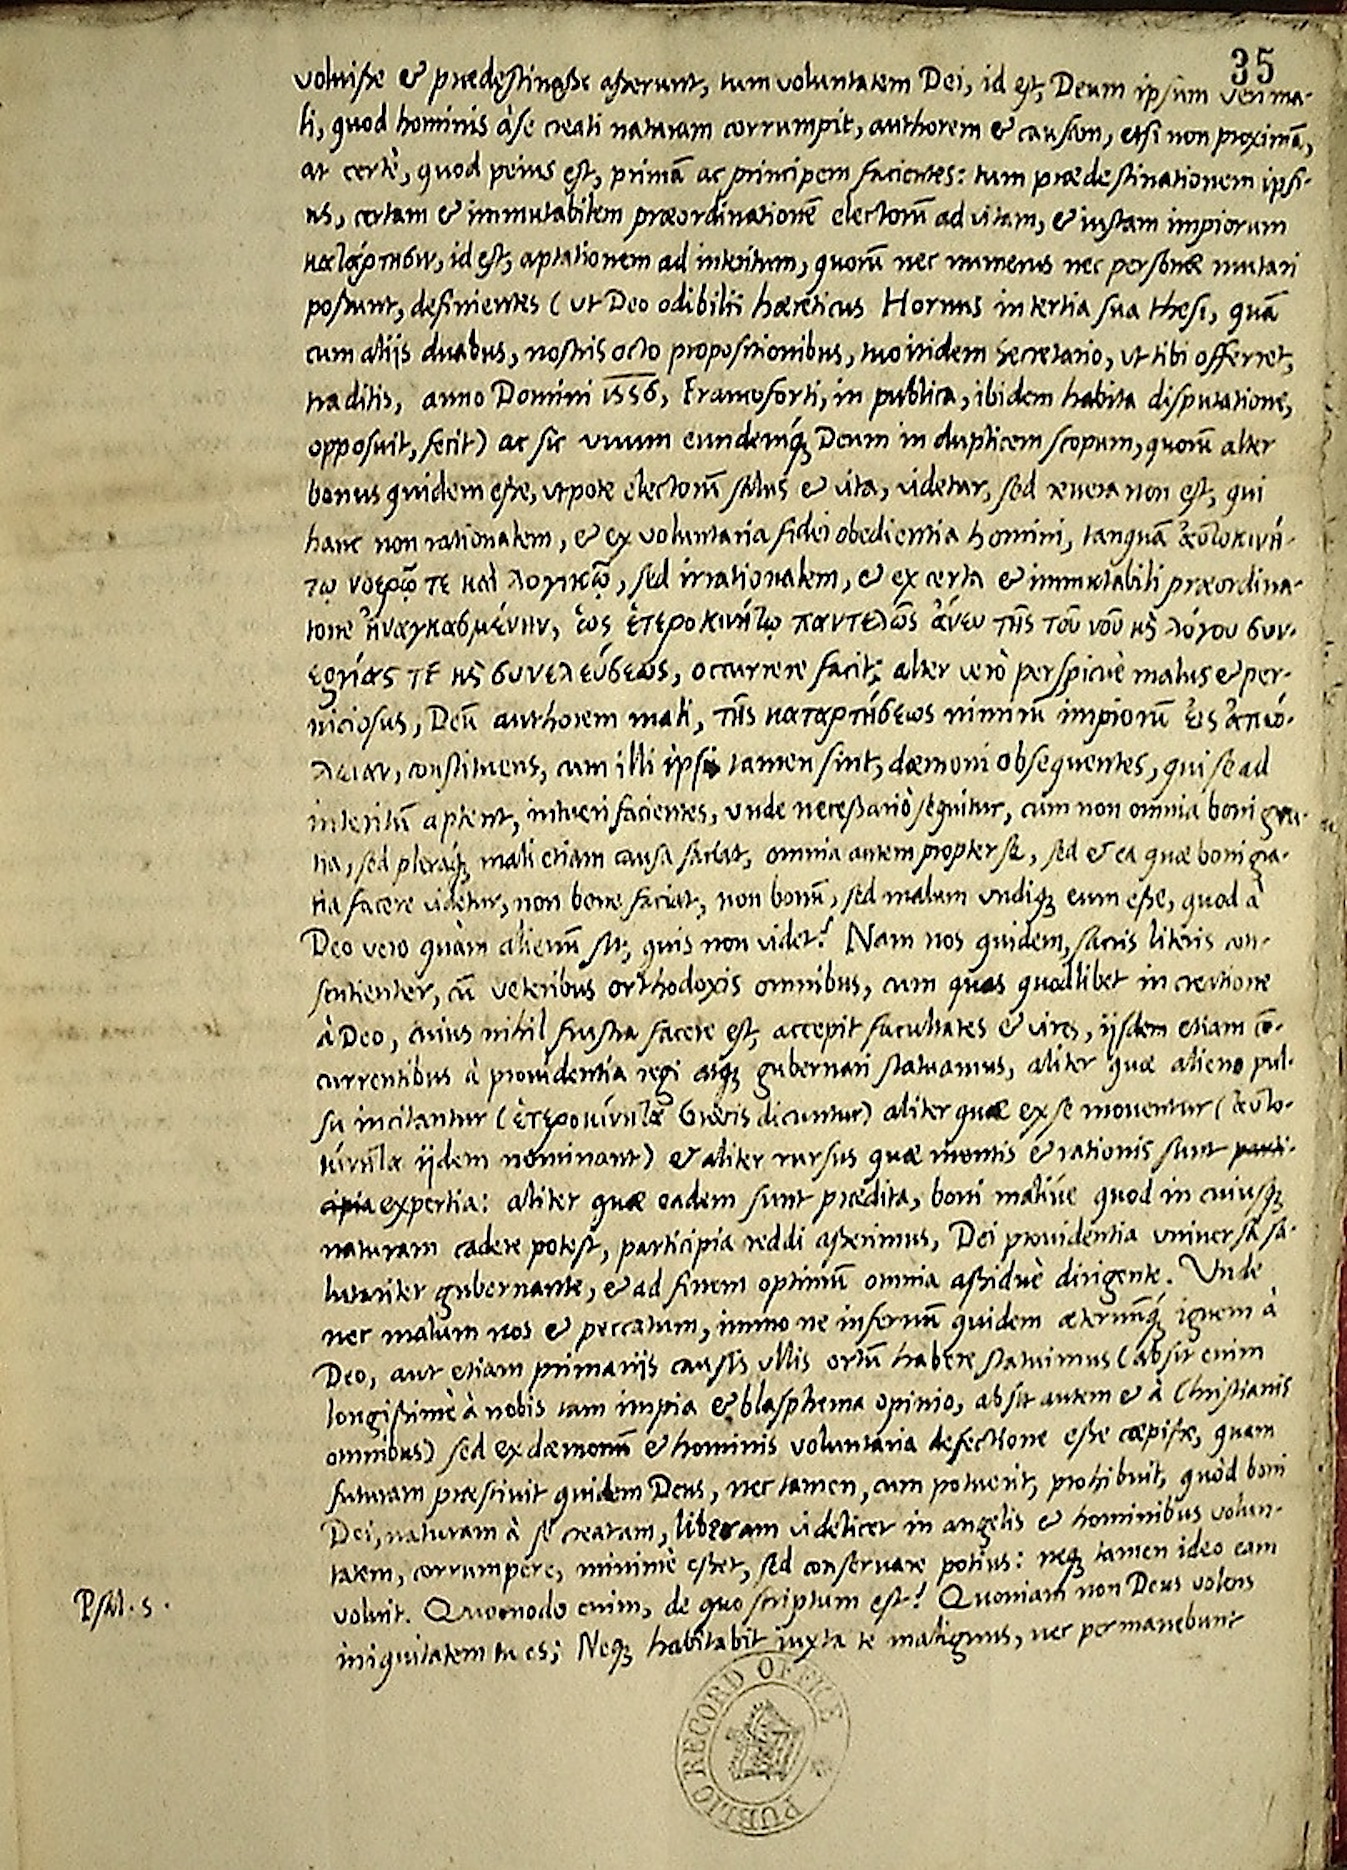 35
voluisse & prædestinasse asserunt, tum voluntatem Dei, id est, Deum ipsum veri ma-
li, quod hominis à se creati naturam corrumpit, authorem & causam, etsi non proximā,
at certè, quod peius est, primā ac principem facientes: tum prædestinationem ipsi-
us, certam & immutabilem præordinationē electorū ad vitam, & iustam impiorum
κατάρτησιν, id est, aptationem ad interitum, quorū nec numerus nec personæ mutari
possunt, definientes (ut Deo odibilis hæreticus Hornus in tertia sua thesi, quā
cum alijs duabus, nostris octo propositionibus, tuo itidem secretario, ut tibi offerret,
traditis, anno Domini 1556, Francoforti, in publica, ibidem habita disputatione,
opposuit, fecit) ac sic unum eundemq́; Deum in duplicem scopum, quorū alter
bonus quidem esse, utpote electorū salus & vita, videtur, sed revera non est, qui
hanc non rationalem, & ex voluntaria fidei obedientia homini, tanquā αὐτοκινή-
τῳ νοερῷ τε καὶ λογικῷ, sed irrationalem, & ex certa & immutabili præordina-
tione ἠναγκασμένην, ὡς ἑτεροκινήτῳ παντελῶς ἄνευ τῆς τοῦ νοῦ κ̀ λόγου συν-
εργίας τε κ̀ συνελεύσεως, occurrere facit; alter verò perspicuè malus & per-
niciosus, Deū authorem mali, τῆς καταρτήσεως nimirū impiorū εἰς ἀπώ-
λειαν, constituens, cum illi ipsi tamen sint, dæmoni obsequentes, qui se ad
interitū aptent, intueri facientes, unde necessariò sequitur, cum non omnia boni gra-
tia, sed pleraq́; mali etiam causa faciat, omnia autem propter se, sed & ea quæ boni gra-
tia facere videtur, non bene faciat, non bonū, sed malum undiq; eum esse, quod à
Deo vero quàm alienū sit, quis non videt? Nam nos quidem, sacris literis con-
sentienter, cū veteribus orthodoxis omnibus, cum quas quodlibet in creatione
à Deo, cuius nihil frustra facere est, accepit facultates & vires, ijsdem etiam cō-
currentibus à providentia regi atq; gubernari statuamus, aliter quæ alieno pul-
su incitantur (ἑτεροκίνητα Græcis dicuntur) aliter quæ ex se moventur (αὐτο-
κίνητα ijdem nominant) & aliter rursus quæ mentis & rationis sunt parti-
cipia expertia: aliter quæ eadem sunt prædita, boni maliúe quod in cuiusq;
naturam cadere potest, participia reddi asserimus, Dei providentia universa sa-
lutariter gubernante, & ad finem optimū omnia assiduè dirigente. Unde
nec malum nos & peccatum, immo ne infernū quidem æternūq́; ignem à
Deo, aut etiam primarijs causis ullis ortū habere statuimus (absit enim
longissimè à nobis tam impia & blasphema opinio, absit autem & à Christianis
omnibus) sed ex dæmonū & hominis voluntaria defectione esse cœpisse, quam
futuram præscivit quidem Deus, nec tamen, cum potuerit, prohibuit, quòd boni
Dei, naturam à se creatam, liberam videlicet in angelis & hominibus volun-
tatem, corrumpere, minimè esset, sed conservare potius: neq; tamen ideo eam
voluit. Quomodo enim, de quo scriptum est? Quoniam non Deus volens
Psal. 5.
iniquitatem tu es; Neq; habitabit iuxta te malignus, nec permanebunt
PUBLIC RECORD OFFICE